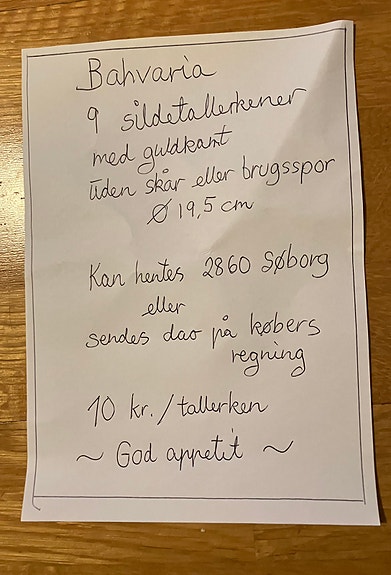 Bahvaria
9 sildetallerkener
med guldkant
uden skår eller brugsspor
Ø 19,5 cm
Kan hentes 2860 Søborg
eller
sendes dao på købers
regning
10 kr./tallerken
~ God appetit ~